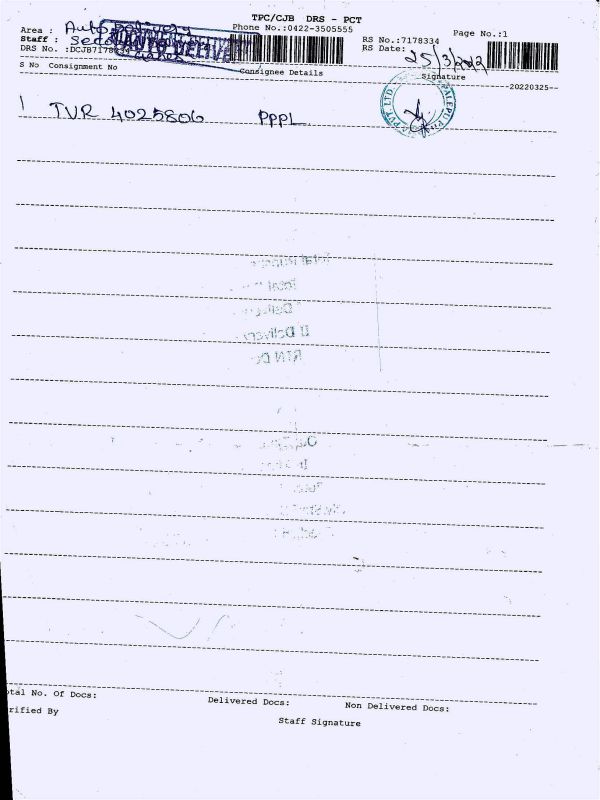 TPC/CJB DRS - PCT
Phone No.:0422-3505555
Page No.:1
Area : Auto Delivery
RS No.:7178334
Staff :
RS Date: 25/3/2022
DRS No. :DCJB7178334
AUTO DELIVE
S No Consignment No Consignee Details Signature
--20220325--
1 TVR 4025806 PPPL
PVT. LTD
otal No. Of Docs: Delivered Docs: Non Delivered Docs:
rified By Staff Signature